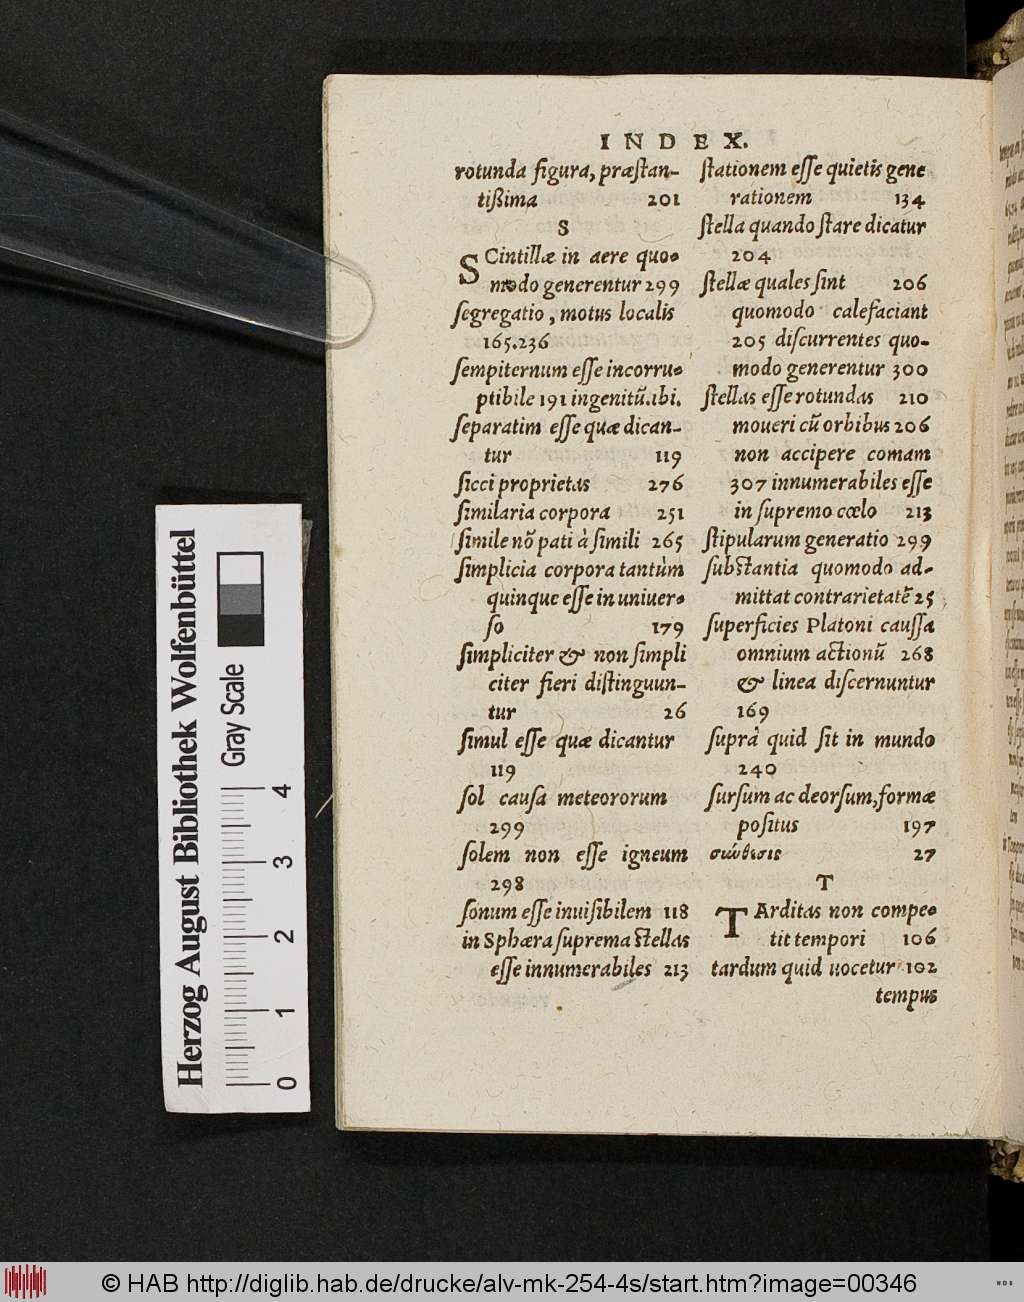 INDEX.
rotunda figura, præſtan-
tißima 201
S
SCintillæ in aere quo-
modo generentur 299
ſegregatio, motus localis
165.236
ſempiternum eſſe incorru-
ptibile 191 ingenitū.ibi.
ſeparatim eſſe quæ dican-
tur 119
ſicci proprietas 276
ſimilaria corpora 251
ſimile nō pati à ſimili 265
ſimplicia corpora tantùm
quinque eſſe in uniuer-
ſo 179
ſimpliciter & non ſimpli
citer fieri diſtinguun-
tur 26
ſimul eſſe quæ dicantur
119
ſol cauſa meteororum
299
ſolem non eſſe igneum
298
ſonum eſſe inuiſibilem 118
in Sphæra ſuprema ſtellas
eſſe innumerabiles 213
ſtationem eſſe quietis gene
rationem 134
ſtella quando ſtare dicatur
204
ſtellæ quales ſint 206
quomodo calefaciant
205 diſcurrentes quo-
modo generentur 300
ſtellas eſſe rotundas 210
moueri cū orbibus 206
non accipere comam
307 innumerabiles eſſe
in ſupremo cœlo 213
ſtipularum generatio 299
ſubſtantia quomodo ad-
mittat contrarietatē 25
ſuperficies Platoni cauſſa
omnium actionū 268
& linea diſcernuntur
169
ſuprà quid ſit in mundo
240
ſurſum ac deorſum, formæ
poſitus 197
σύνθεσις 27
T
TArditas non compe-
tit tempori 106
tardum quid uocetur 102
tempus
Herzog August Bibliothek Wolfenbüttel
Gray Scale
0 1 2 3 4
© HAB http://diglib.hab.de/drucke/alv-mk-254-4s/start.htm?image=00346
WDB